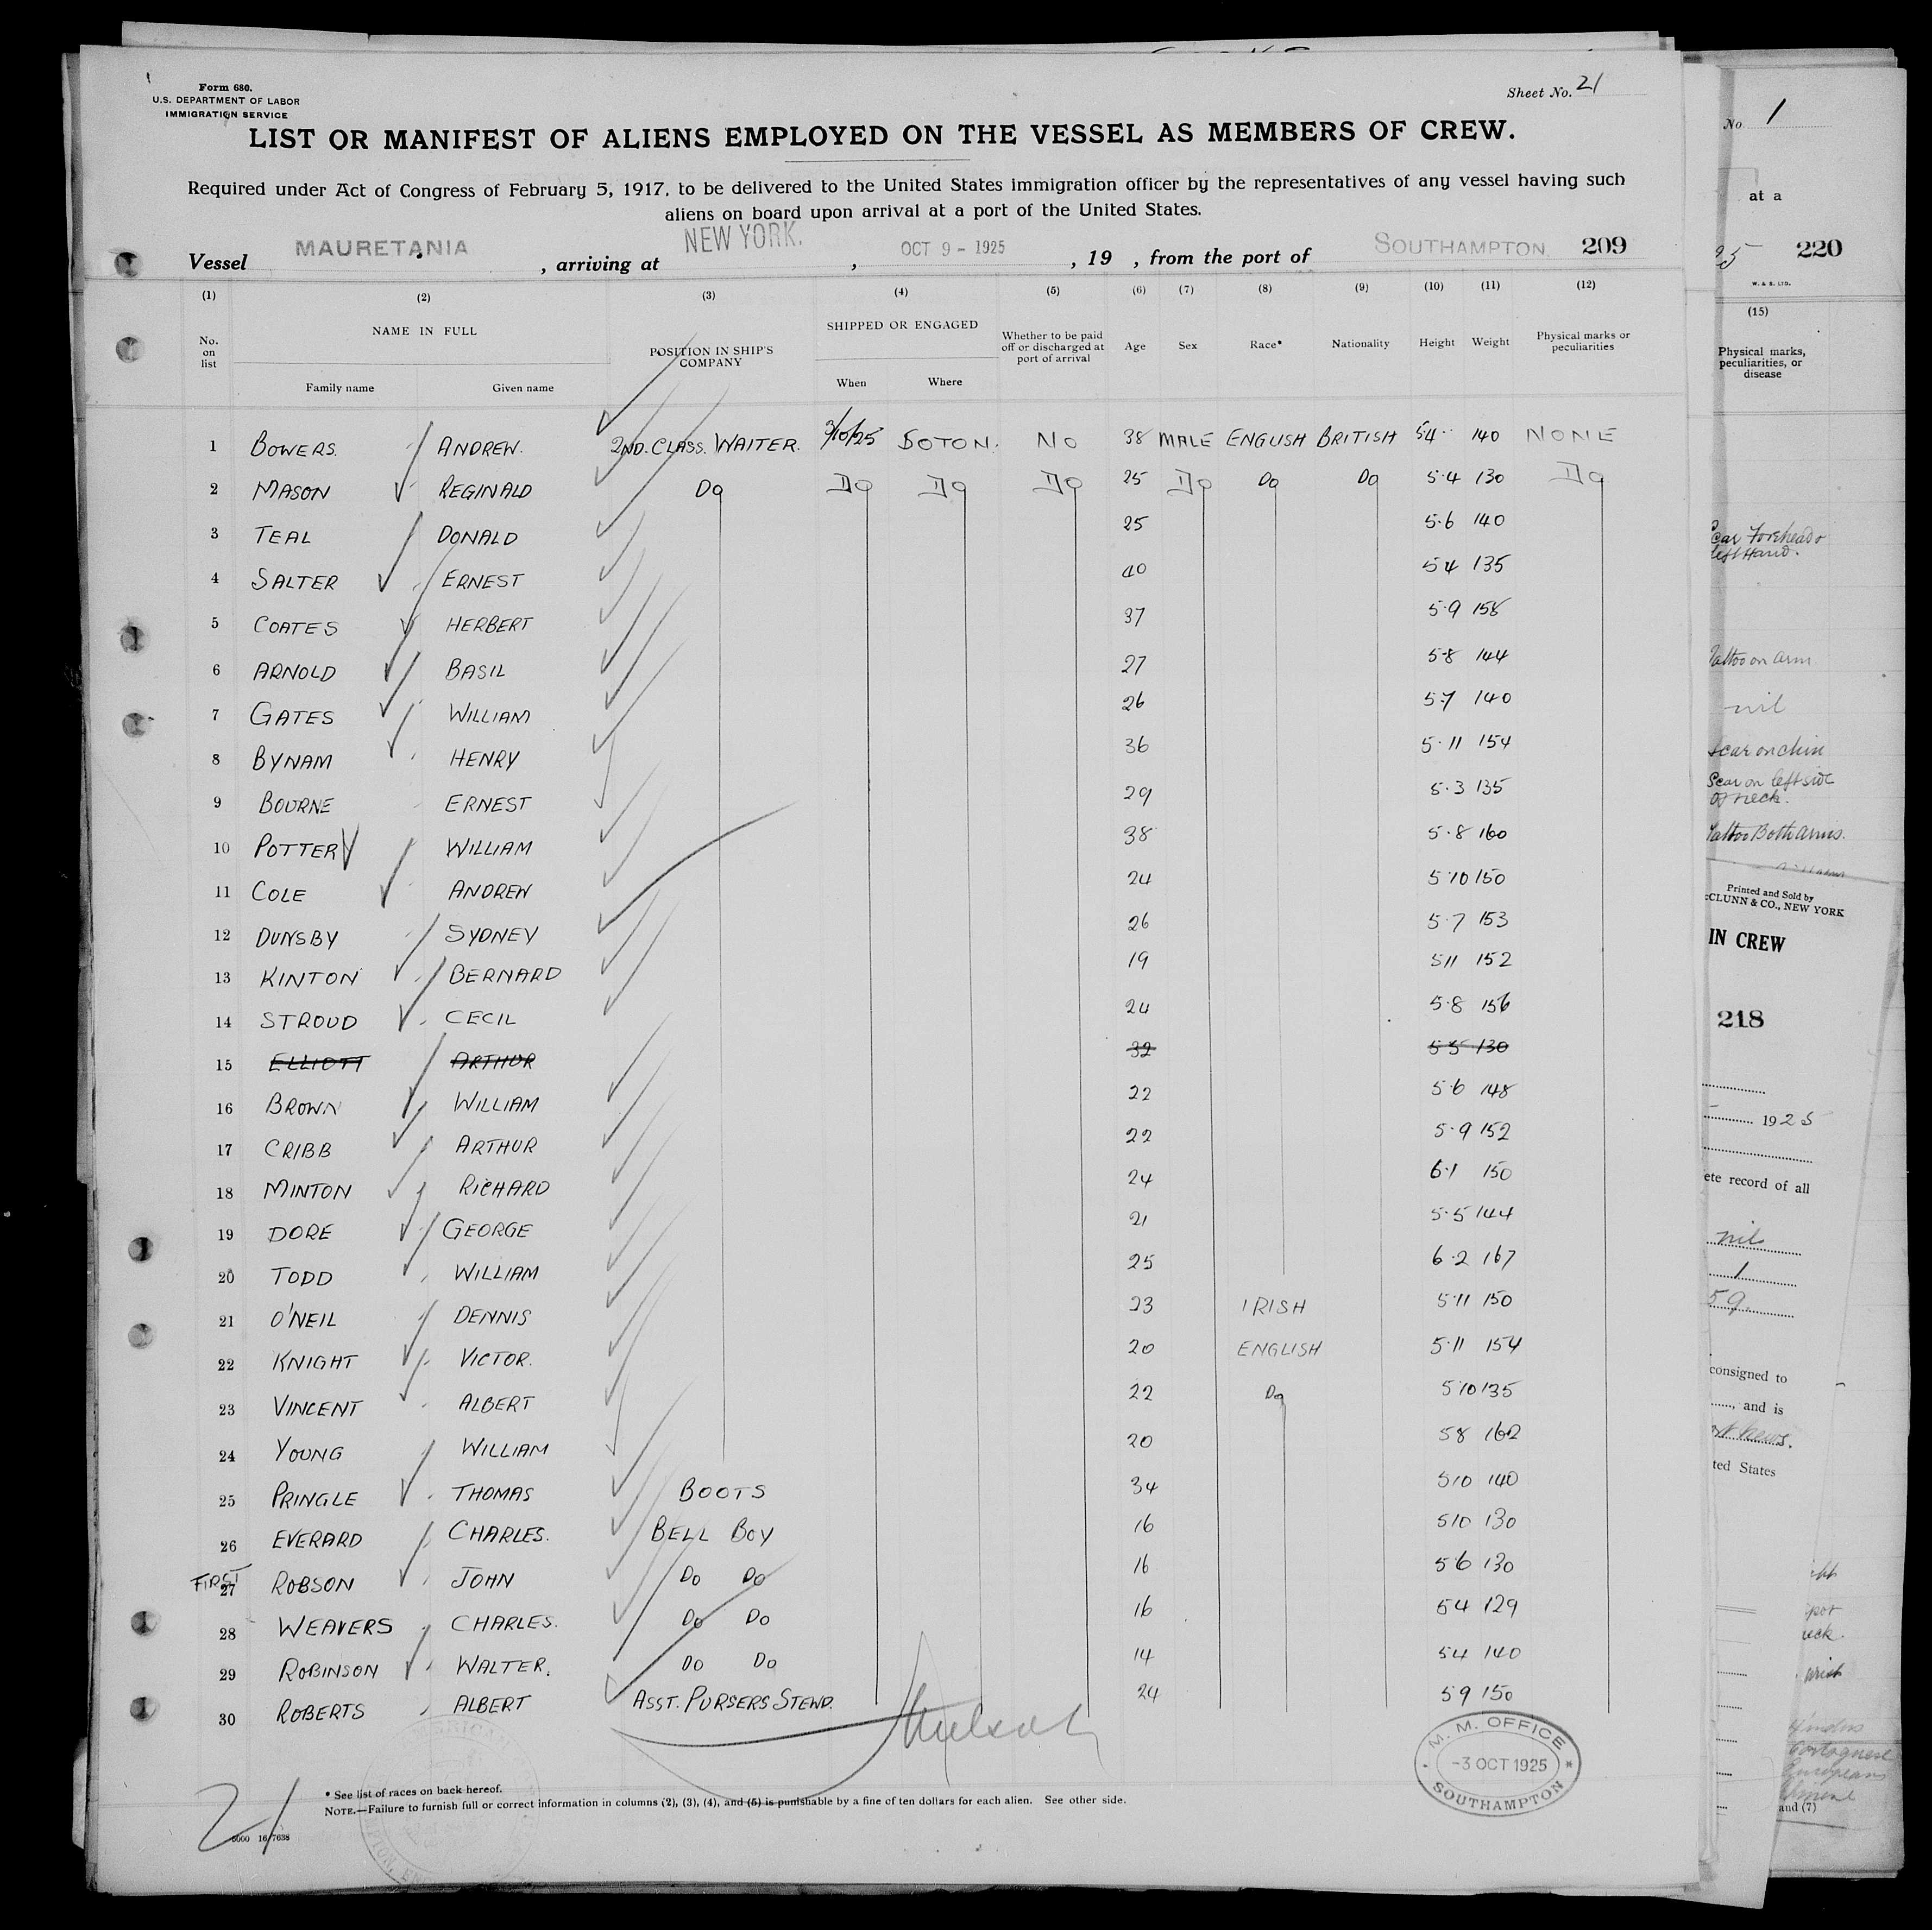 Form 680.
U.S. DEPARTMENT OF LABOR
IMMIGRATION SERVICE
Sheet No. 21
LIST OR MANIFEST OF ALIENS EMPLOYED ON THE VESSEL AS MEMBERS OF CREW.
Required under Act of Congress of February 5, 1917, to be delivered to the United States immigration officer by the representatives of any vessel having such
aliens on board upon arrival at a port of the United States.
Vessel MAURETANIA, arriving at NEW YORK., OCT 9 - 1925, 19 , from the port of SOUTHAMPTON. 209
(1) (2) (3) (4) (5) (6) (7) (8) (9) (10) (11) (12)
No. on list NAME IN FULL POSITION IN SHIP'S COMPANY SHIPPED OR ENGAGED Whether to be paid off or discharged at port of arrival Age Sex Race* Nationality Height Weight Physical marks or peculiarities
Family name Given name When Where
1 BOWERS. ANDREW. 2ND. CLASS. WAITER. 3/10/25 SOTON. NO 38 MALE ENGLISH BRITISH 5.4 140 NONE
2 MASON REGINALD Do Do Do Do 25 Do Do Do 5.4 130 Do
3 TEAL DONALD 25 5.6 140
4 SALTER ERNEST 40 5 4 135
5 COATES HERBERT 37 5.9 158
6 ARNOLD BASIL 27 5.8 144
7 GATES WILLIAM 26 5.7 140
8 BYNAM HENRY 36 5.11 154
9 BOURNE ERNEST 29 5.3 135
10 POTTER WILLIAM 38 5.8 160
11 COLE ANDREW 24 5 10 150
12 DUNSBY SYDNEY 26 5.7 153
13 KINTON BERNARD 19 5 11 152
14 STROUD CECIL 24 5.8 156
15 ELLIOTT ARTHUR 32 5 5 130
16 BROWN WILLIAM 22 5.6 148
17 CRIBB ARTHUR 22 5.9 152
18 MINTON RICHARD 24 6.1 150
19 DORE GEORGE 21 5.5 144
20 TODD WILLIAM 25 6.2 167
21 O'NEIL DENNIS 23 IRISH 5.11 150
22 KNIGHT VICTOR. 20 ENGLISH 5.11 154
23 VINCENT ALBERT 22 Do 5 10 135
24 YOUNG WILLIAM 20 5 8 162
25 PRINGLE THOMAS BOOTS 34 5 10 140
26 EVERARD CHARLES. BELL BOY 16 5 10 130
FIRST
27 ROBSON JOHN Do Do 16 5 6 130
28 WEAVERS CHARLES. Do Do 16 5 4 129
29 ROBINSON WALTER. Do Do 14 5 4 140
30 ROBERTS ALBERT ASST. PURSERS STEWD. 24 5 9 150
M. M. OFFICE
-3 OCT 1925
SOUTHAMPTON
* See list of races on back hereof.
NOTE.—Failure to furnish full or correct information in columns (2), (3), (4), and (5) is punishable by a fine of ten dollars for each alien. See other side.
21
6000 16/7638
No 1
at a
220
W. & S. LTD.
(15)
Physical marks,
peculiarities, or
disease
Scar Forehead &
left Hand.
Tattoo on arm
nil
Scar on chin
Scar on left side
of neck.
Tattoo Both arms.
Printed and Sold by
CLUNN & CO., NEW YORK
IN CREW
218
1925
ete record of all
nil
1
59
consigned to
, and is
ted States
and (7)